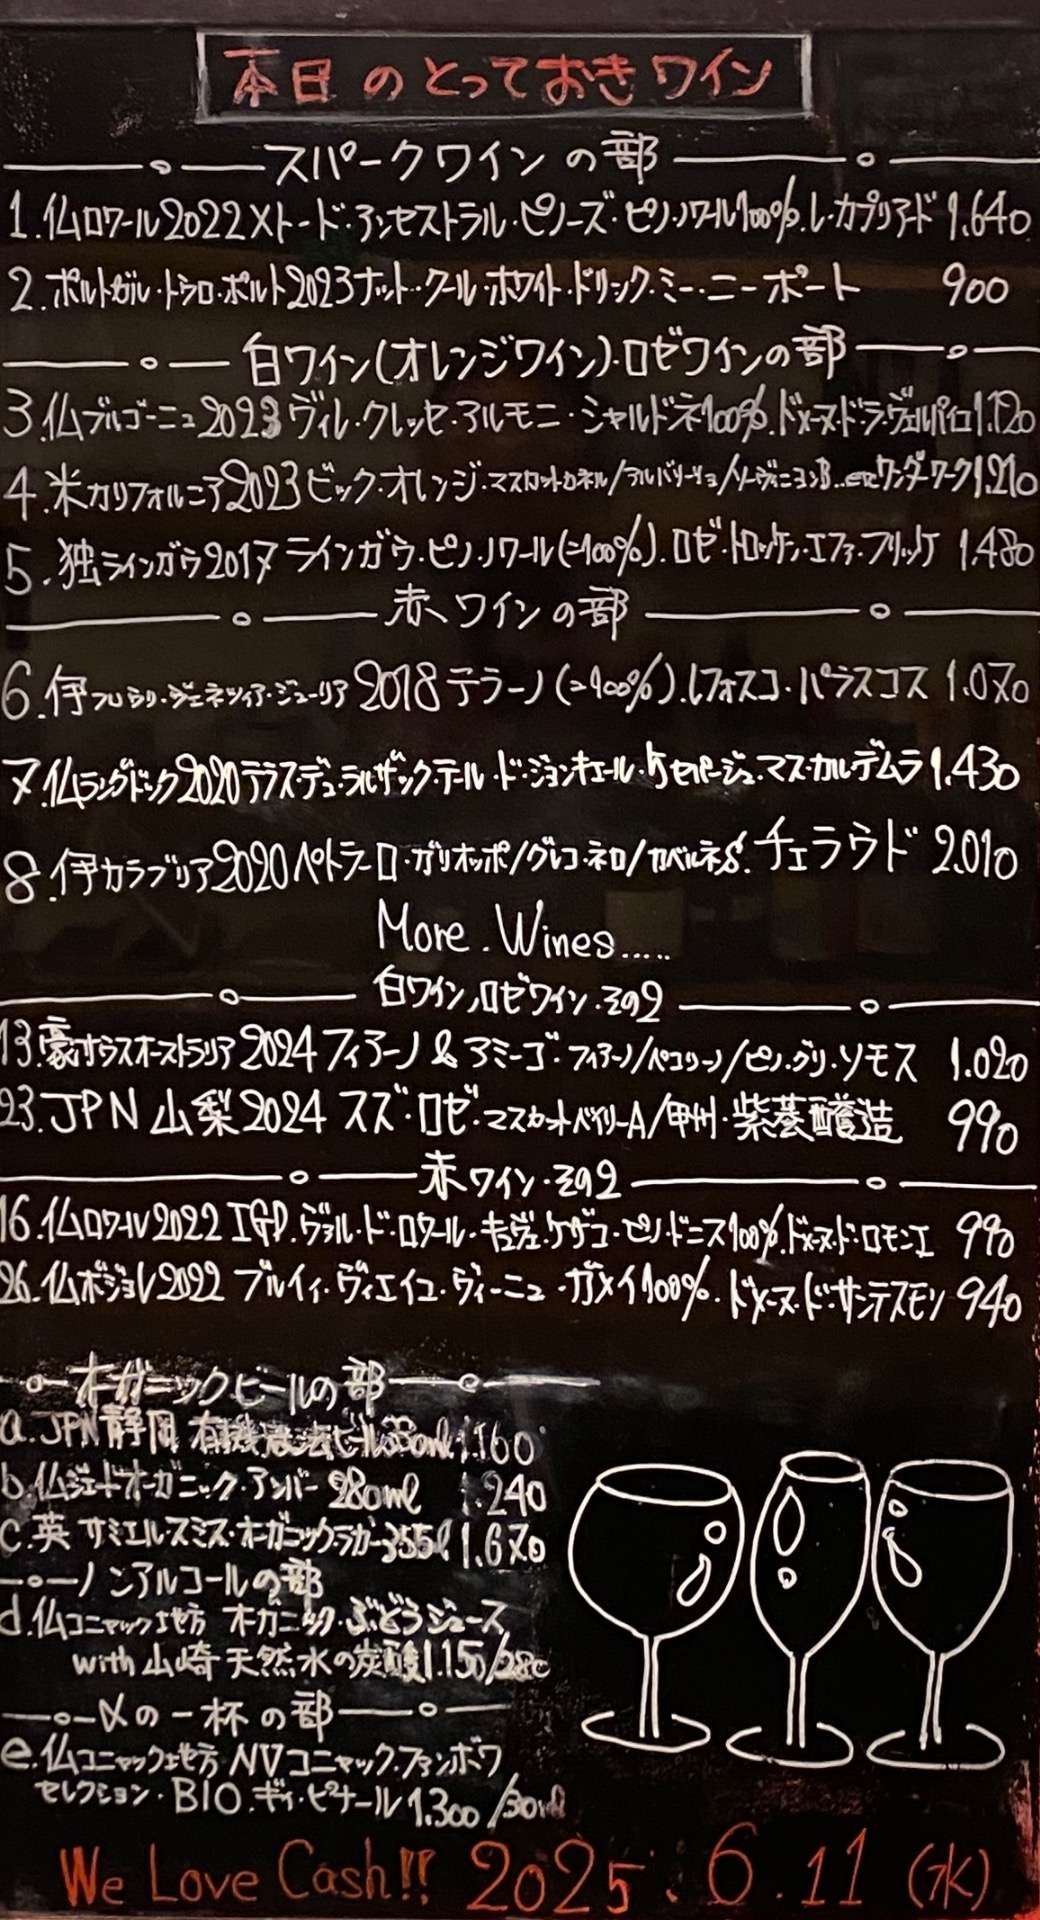 本日のとっておきワイン
スパークワインの部
1.仏ロワール2022メトード·アンセストラル·ピノーズ·ピノノワール100%.レ·カプリアード 1.640
2.ポルトガル·ドウロ·ポルト2023ナット·クール·ホワイト·ドリンク·ミー·ニーポート 900
白ワイン(オレンジワイン)·ロゼワインの部
3.仏ブルゴーニュ2023ヴィレ·クレッセ·アルモニ·シャルドネ100%.ドメーヌ·ド·ラ·ヴェルパイユ 1.120
4.米カリフォルニア2023ビック·オレンジ·マスカットカネル/アルバリーリョ/ソーヴィニヨンB...etcワンダーワーク 1.210
5.独ラインガウ2017ラインガウ·ピノノワール(=100%).ロゼ·トロッケン·エファ·フリッケ 1.480
赤ワインの部
6.伊フリウリ·ヴェネツィア·ジューリア2018テラーノ(=100%).レフォスコ·パラスコス 1.070
7.仏ラングドック2020テラス·デュ·ラルザック·テール·ド·ジョンキエール·ケセパージュ·マス·カルデムラ 1.430
8.伊カラブリア2020ペトラーロ·ガリオッポ/グレコ·ネロ/カベルネS.チェラウド 2.010
More.Wines.....
白ワイン,ロゼワイン·その2
13.豪サウスオーストラリア2024フィアーノ&アミーゴ·フィアーノ/ペコリーノ/ピノ.グリ·ソモス 1.020
23.JPN 山梨2024 スズ·ロゼ·マスカットベイリーA/甲州·紫葛醸造 990
赤ワイン·その2
16.仏ロワール2022 IGP.ヴァル·ド·ロワール·キュヴェ·ケザコ·ピノ·ドニス100%.ドメーヌ·ド·ロモンエ 990
26.仏ボジョレ2022 ブルイィ·ヴィエイユ·ヴィーニュ·ガメイ100%.ドメーヌ·ド·サンテスモン 940
オーガニックビールの部
a.JPN静岡 有機農法ビール330ml 1.160
b.仏ジェードオーガニック·アンバー 280ml 1.240
c.英 サミエルスミス·オーガニックラガー355ℓ 1.670
ノンアルコールの部
d.仏コニャック地方 オーガニック·ぶどうジュース
with 山崎天然水の炭酸 1.150/280
〆の一杯の部
e.仏コニャック地方 NVコニャック.ファンボワ
セレクション·BIO.ギィ·ピナール 1.300/30ml
We Love Cash!! 2025.6.11(水)